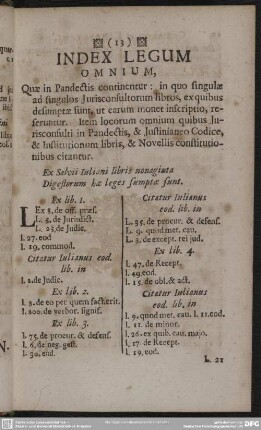 (13)
INDEX LEGUM
OMNIUM,
Quæ in Pandectis continentur: in quo singulæ
ad singulos Jurisconsultorum libros, ex quibus
desumptæ sunt, ut earum monet inscriptio, re-
feruntur. Item locorum omnium quibus Ju-
risconsulti in Pandectis, & Justinianeo Codice,
& Institutionum libris, & Novellis constitutio-
nibus citantur.
Ex Salvii Iuliani libris nonaginta
Digestorum hæ leges sumptæ sunt.
Ex lib. 1.
LEx 5. de off. præs.
l. 3. de Jurisdict.
L. 23. de Judic.
l. 27. eod
l. 19. commod.
Citatur Iulianus eod.
lib. in
l. 2. de Judic.
Ex lib. 2.
l. 2. de eo per quem fact. erit.
l. 200. de verbor. signif.
Ex lib. 3.
l. 75. de procur. & defens.
l. 6. de neg. gest.
l. 30. eod.
Citatur Iulianus
eod. lib. in
L. 35. de procur. & defens.
L. 9. quod met. cau.
l. 3. de except. rei jud.
Ex lib. 4.
l. 47. de Recept.
l. 49. eod.
l. 15. de obl. & act.
Citatur Iulianus
eod. lib. in
l. 9. quod met. cau. l. 11. eod.
l. 11. de minor.
l. 26. ex quib. cau. majo.
l. 17. de Recept.
l. 19. eod.
L. 21